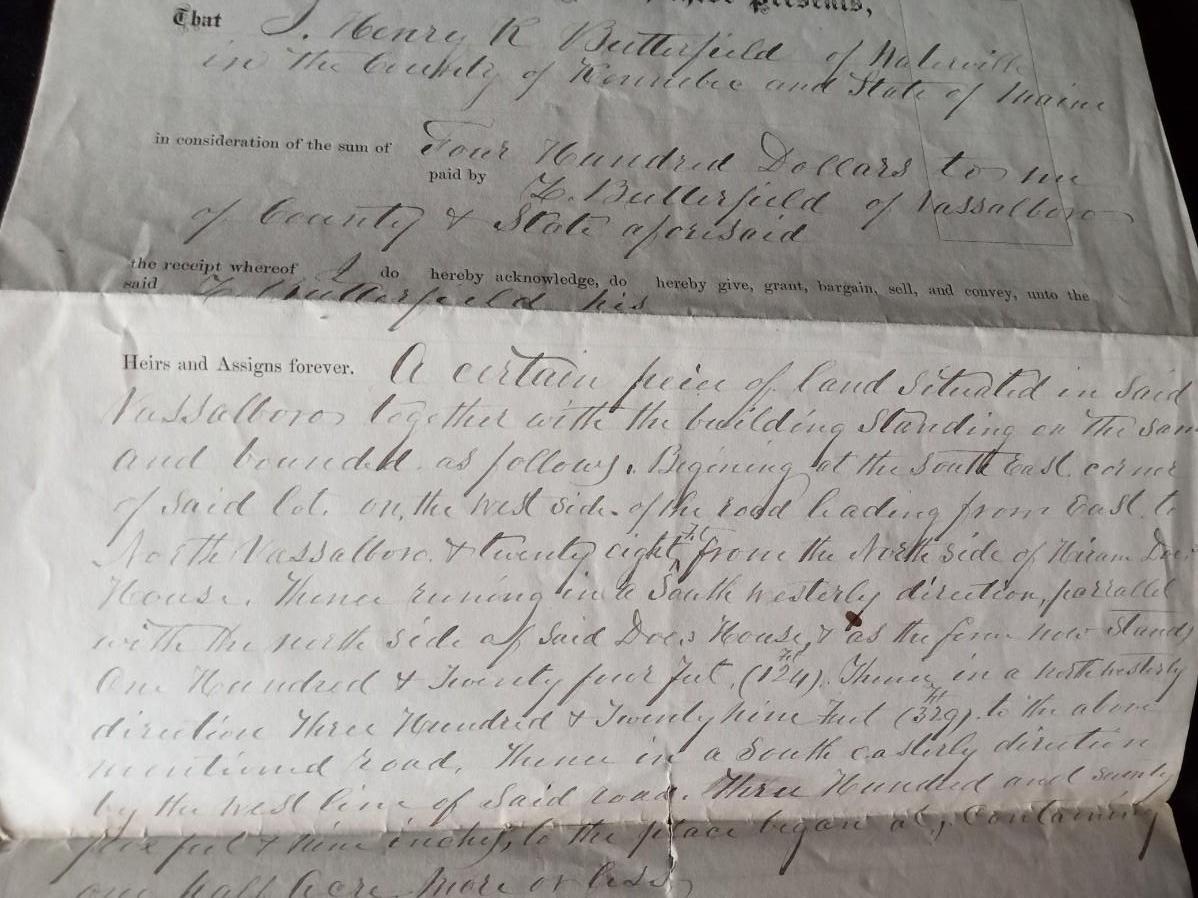 these Presents,
That I. Henry R Butterfield of Waterville
in the County of Kennebec and State of Maine
in consideration of the sum of Four Hundred Dollars to me
paid by Z. Butterfield of Vassalboro
of County & State aforesaid
the receipt whereof I do hereby acknowledge, do hereby give, grant, bargain, sell, and convey, unto the
said Z Butterfield his
Heirs and Assigns forever. A certain peice of land situated in said
Vassalboro together with the building standing on the sam
and bounded as follows. Begining at the South East corner
of said lot. on the west side of the road leading from East to
North Vassalboro. & twenty eight Ft from the North side of Hiram Doe
House. Thence runing in a South westerly direction, parralled
with the north side of said Does House, & as the fence now stands
One Hundred & Twenty four Feet. (124 Ft). Thence in a northwesterly
direction Three Hundred & Twenty nine Feet (329 Ft) to the above
mentioned road, Thence in a South easterly direction
by the west line of said road. Three Hundred and seventy
five feet & nine inches, to the place began at, Containing
one half Acre more or less